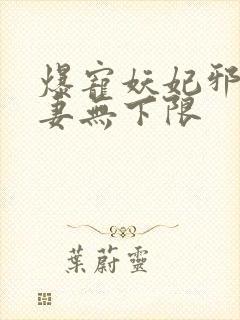 爆寵妖妃邪
妻無下限
葉蔚靈